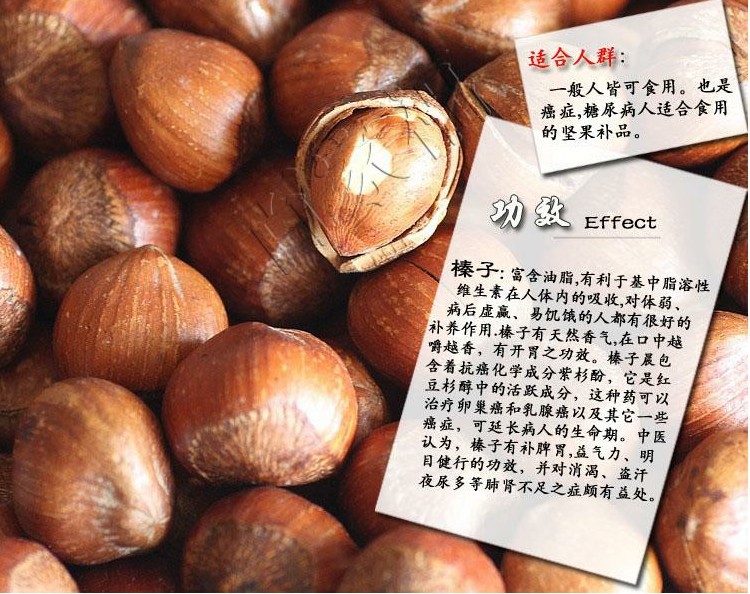 适合人群：
一般人皆可食用。也是
癌症,糖尿病人适合食用
的坚果补品。
功效 Effect
榛子：富含油脂,有利于基中脂溶性
维生素在人体内的吸收,对体弱、
病后虚羸、易饥饿的人都有很好的
补养作用.榛子有天然香气,在口中越
嚼越香，有开胃之功效。榛子晨包
含着抗癌化学成分紫杉酚，它是红
豆杉醇中的活跃成分，这种药可以
治疗卵巢癌和乳腺癌以及其它一些
癌症，可延长病人的生命期。中医
认为，榛子有补脾胃,益气力、明
目健行的功效，并对消渴、盗汗
夜尿多等肺肾不足之症颇有益处。